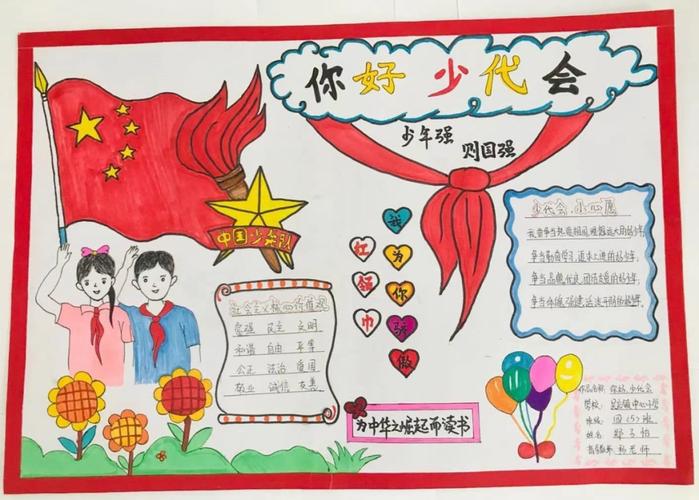 你好 少代会
少年强
则国强
中国少先队
红领巾
我为你骄傲
少代会,小心愿
我要争当热爱祖国、理想远大的好少年,
争当勤奋学习、追求上进的好少年,
争当品德优良、团结友爱的好少年,
争当体魄强健、活泼开朗的好少年.
社会主义核心价值观
富强 民主 文明
和谐 自由 平等
公正 法治 爱国
敬业 诚信 友善
为中华之崛起而读书
作品名称: 你好,少代会
学校: 镇中心小学
班级: 四(5)班
姓名 子怡
指导教师 杨老师